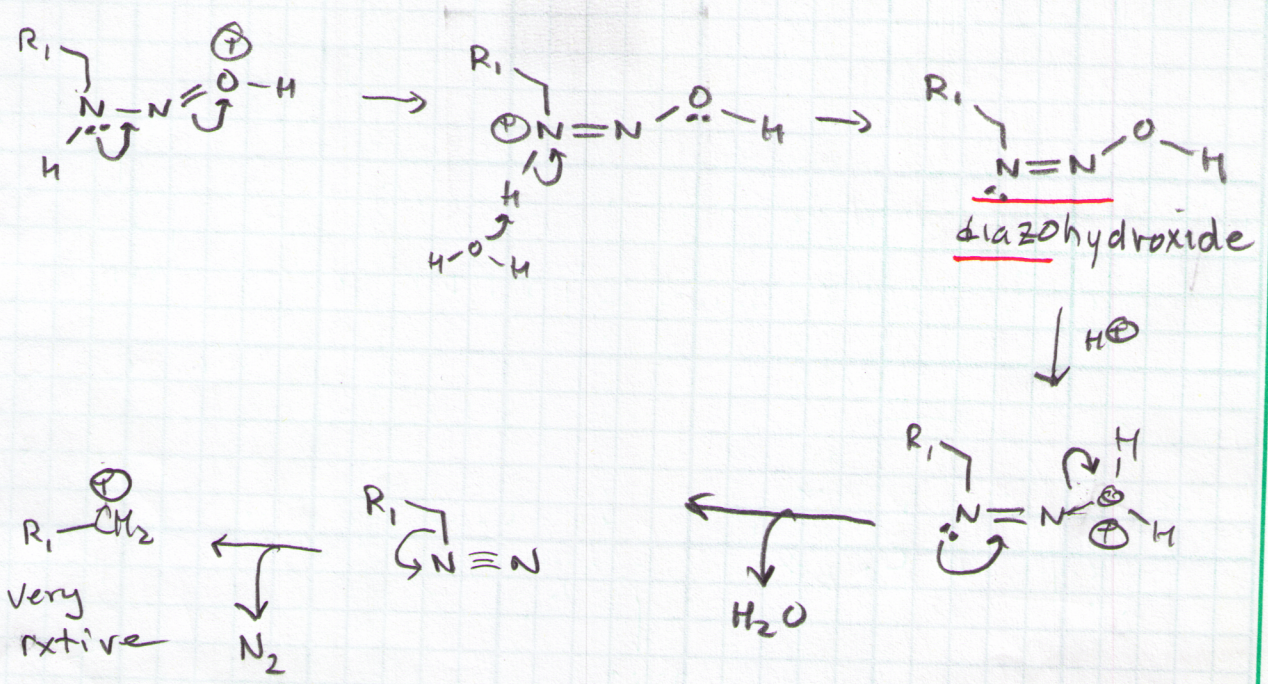 R₁ N – N = O – H ⊕ H
R₁ ⊕ N = N O H H
H O H
R₁ N = N O H
diazohydroxide
H⊕
R₁ N = N O H H ⊕
H₂O
R₁ N ≡ N
N₂
R₁ – CH₂ ⊕
very
rxtive